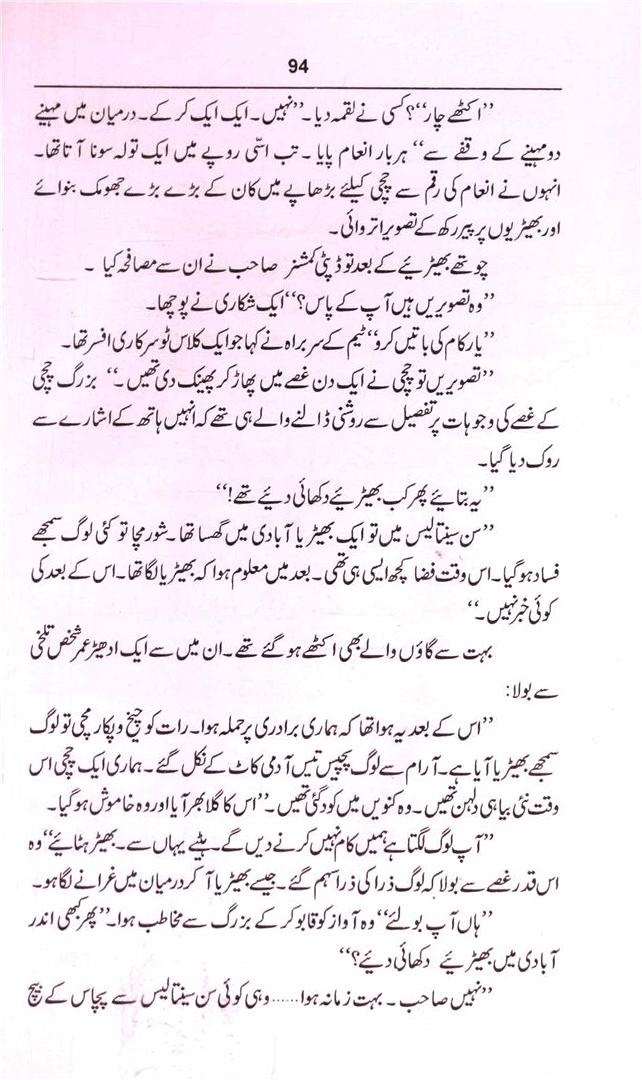 94
”اکٹھے چار“؟ کسی نے لقمہ دیا۔ ”نہیں۔ ایک ایک کر کے۔ درمیان میں مہینے
دو مہینے کے وقفے سے“ ہر بار انعام پایا ۔ تب اسّی روپے میں ایک تولہ سونا آتا تھا۔
انہوں نے انعام کی رقم سے چچی کیلئے بڑھاپے میں کان کے بڑے بڑے جھومک بنوائے
اور بھیڑیوں پر پیر رکھ کے تصویر اتروائی۔
چوتھے بھیڑیئے کے بعد تو ڈپٹی کمشنر صاحب نے ان سے مصافحہ کیا ۔
”وہ تصویریں ہیں آپ کے پاس؟“ ایک شکاری نے پوچھا۔
”یار کام کی باتیں کرو“ ٹیم کے سربراہ نے کہا جو ایک کلاس ٹو سرکاری افسر تھا۔
”تصویریں تو چچی نے ایک دن غصے میں پھاڑ کر پھینک دی تھیں ۔“ بزرگ چچی
کے غصے کی وجوہات پر تفصیل سے روشنی ڈالنے والے ہی تھے کہ انہیں ہاتھ کے اشارے سے
روک دیا گیا۔
”یہ بتایئے پھر کب بھیڑیئے دکھائی دیئے تھے!“
”سن سینتالیس میں تو ایک بھیڑیا آبادی میں گھسا تھا ۔ شور مچا تو کئی لوگ سمجھے
فساد ہو گیا۔ اس وقت فضا کچھ ایسی ہی تھی ۔ بعد میں معلوم ہوا کہ بھیڑیا لگا تھا۔ اس کے بعد کی
کوئی خبر نہیں ۔“
بہت سے گاؤں والے بھی اکٹھے ہو گئے تھے ۔ ان میں سے ایک ادھیڑ عمر شخص تلخی
سے بولا:
”اس کے بعد یہ ہوا تھا کہ ہماری برادری پر حملہ ہوا۔ رات کو چیخ و پکار مچی تو لوگ
سمجھے بھیڑیا آیا ہے۔ آرام سے لوگ پچیس تیس آدمی کاٹ کے نکل گئے ۔ ہماری ایک چچی اس
وقت نئی بیاہی دلہن تھیں ۔ وہ کنویں میں کود گئی تھیں ۔“ اس کا گلا بھر آیا اور وہ خاموش ہو گیا۔
”آپ لوگ لگتا ہے ہمیں کام نہیں کرنے دیں گے۔ ہٹیے یہاں سے۔ بھیڑ ہٹایئے“ وہ
اس قدر غصے سے بولا کہ لوگ ذرا کی ذرا سہم گئے ۔ جیسے بھیڑیا آ کر درمیان میں غرانے لگا ہو۔
”ہاں آپ بولئے“ وہ آواز کو قابو کر کے بزرگ سے مخاطب ہوا۔ ”پھر کبھی اندر
آبادی میں بھیڑیئے دکھائی دیئے؟“
”نہیں صاحب ۔ بہت زمانہ ہوا...... وہی کوئی سن سینتالیس سے پچاس کے بیچ